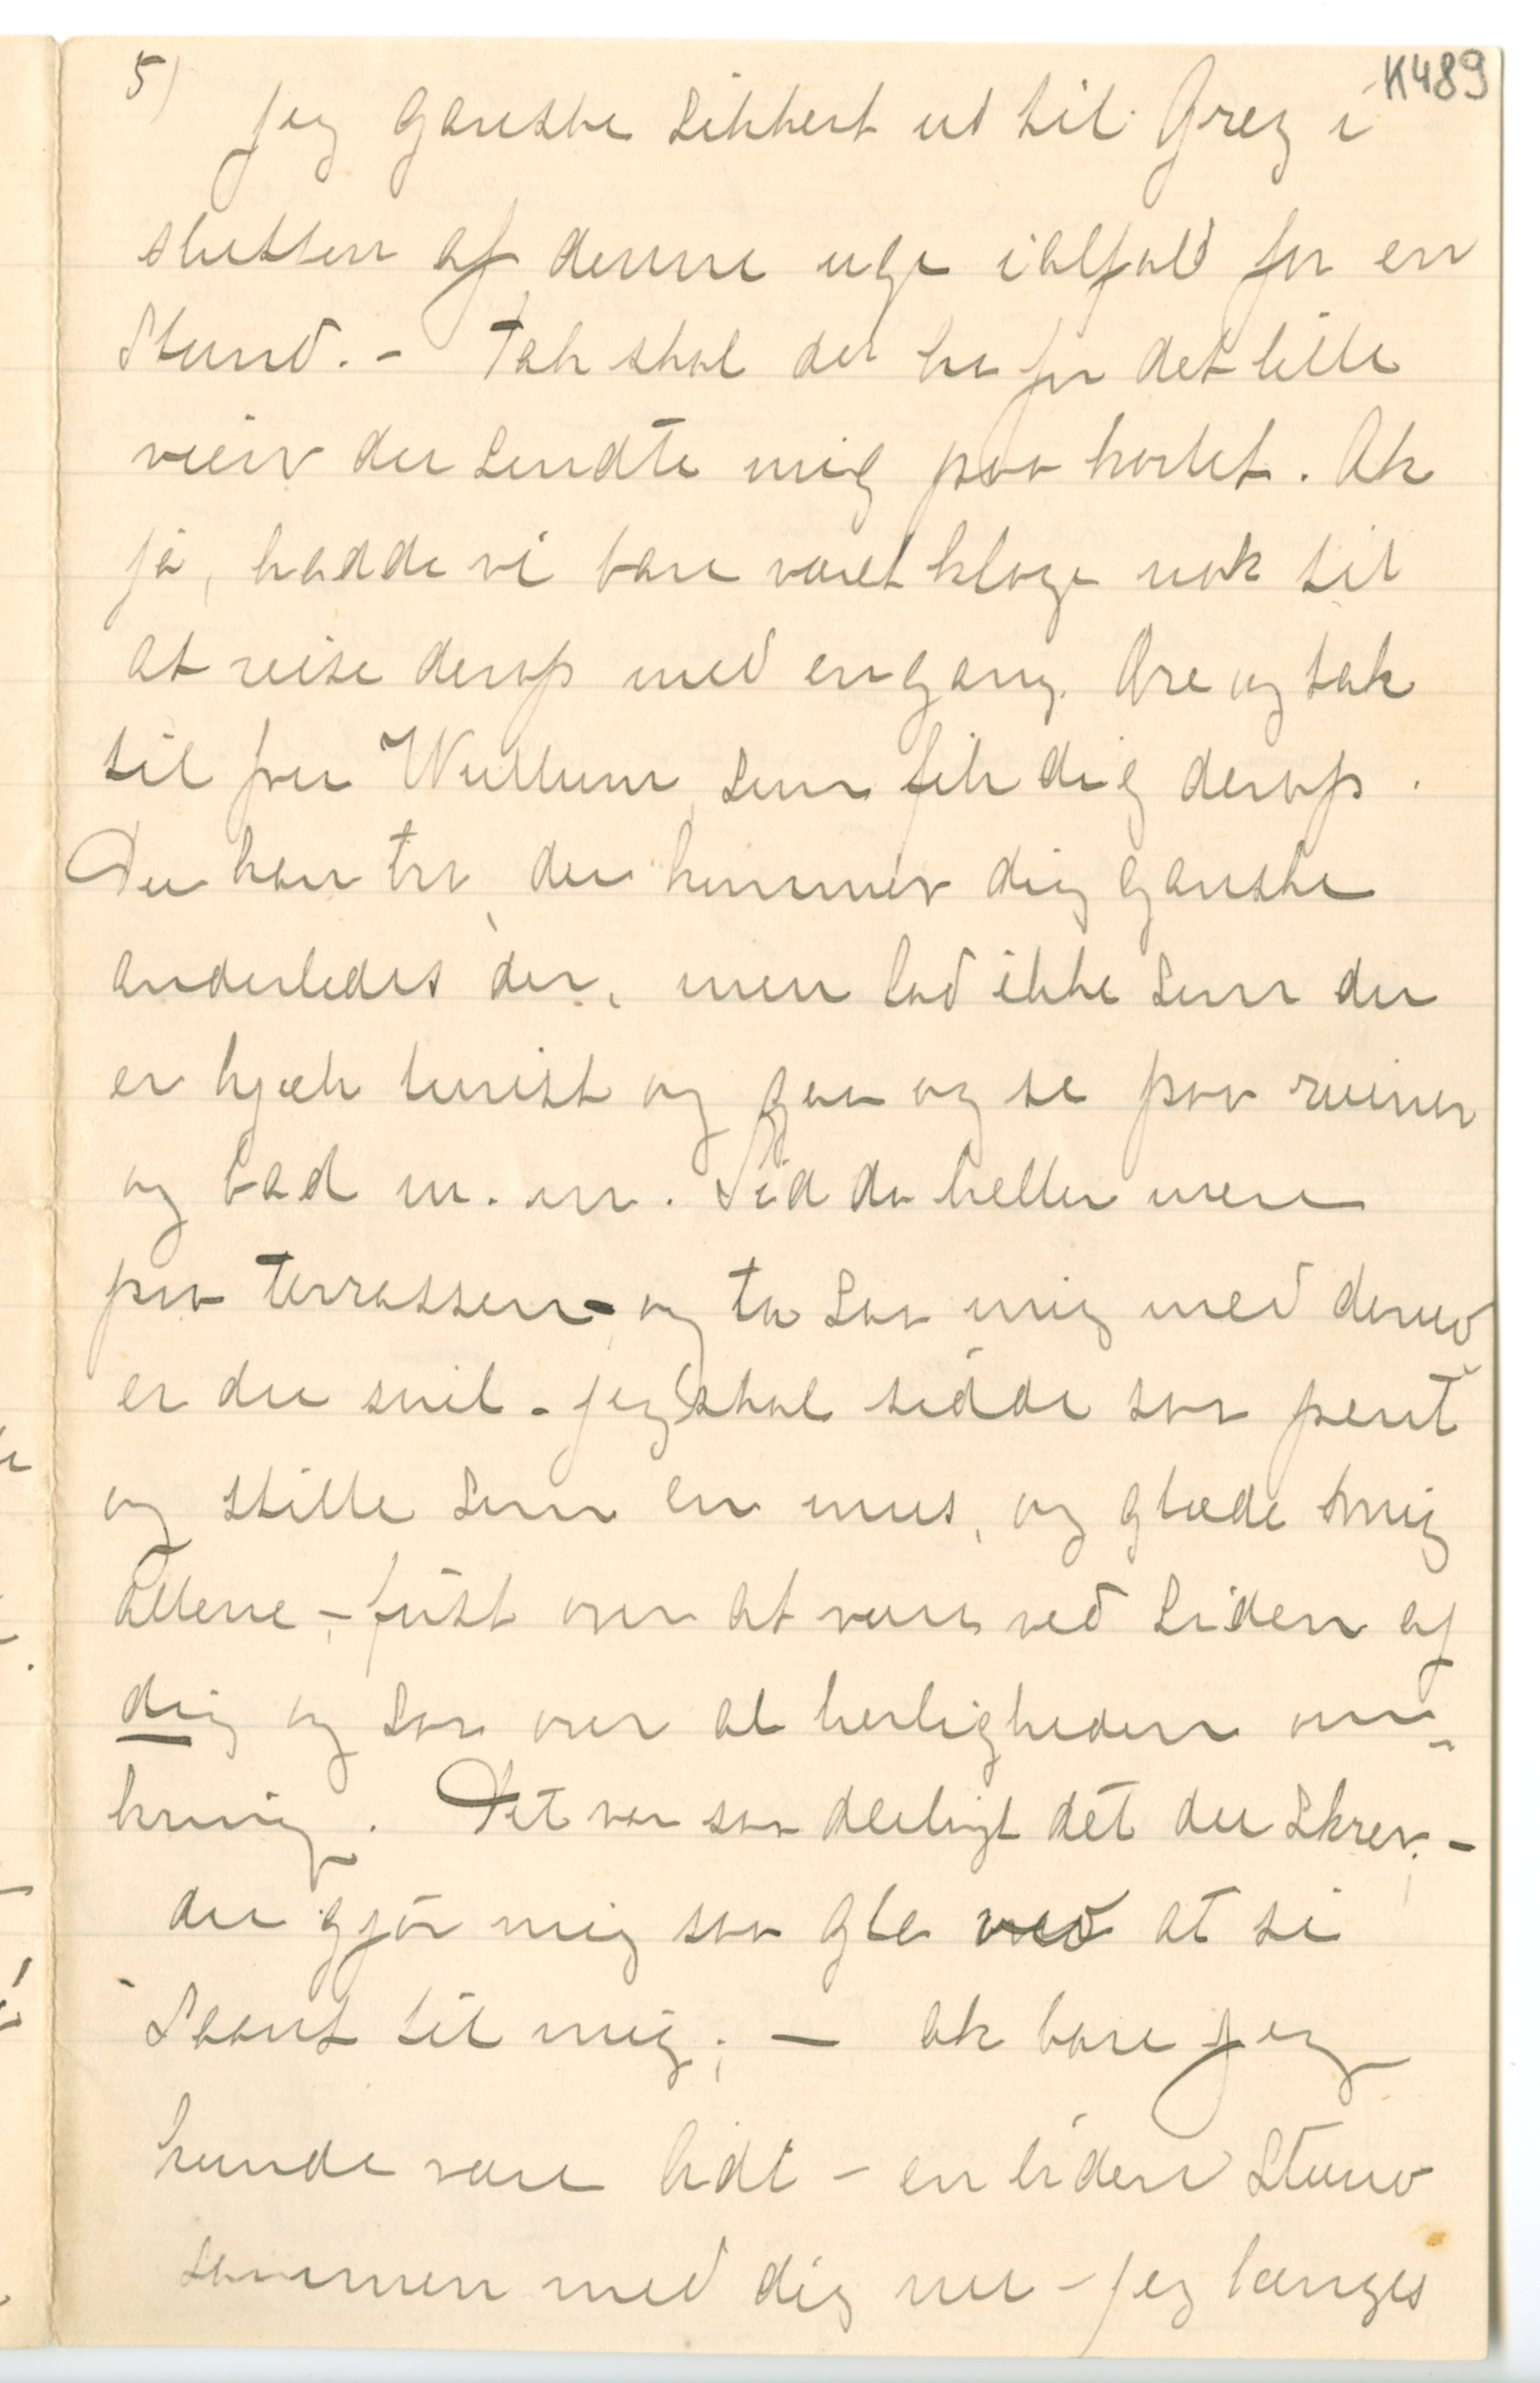 5) K489
jeg ganske sikkert ud til Grez i
slutten af denne uge ialfald for en
stund. - Tak skal du ha for det lille
veiv du sendte mig paa kortet. Ak
ja, hadde vi bare været kloge nok til
at reise derop med engang. Ære og tak
til fru Wullum som fik dig derop.
Du kan tro du kommer dig ganske
anderledes der, men lad ikke som du
er kjæk turist og gaa og se paa ruiner
og bad m. m. Sid da heller mere
paa terrassen - og ta saa mig med derud
er du snil - jeg skal sidde saa pent
og stille som en mus, og glæde mig
allene, - først over at være ved siden af
dig og saa over al herligheden om-
kring. Det var saa deiligt det du skrev. -
du gjør mig saa gla ved at si
saant til mig; - ak bare jeg
kunde være lidt - en liden stund
sammen med dig nu - jeg længes